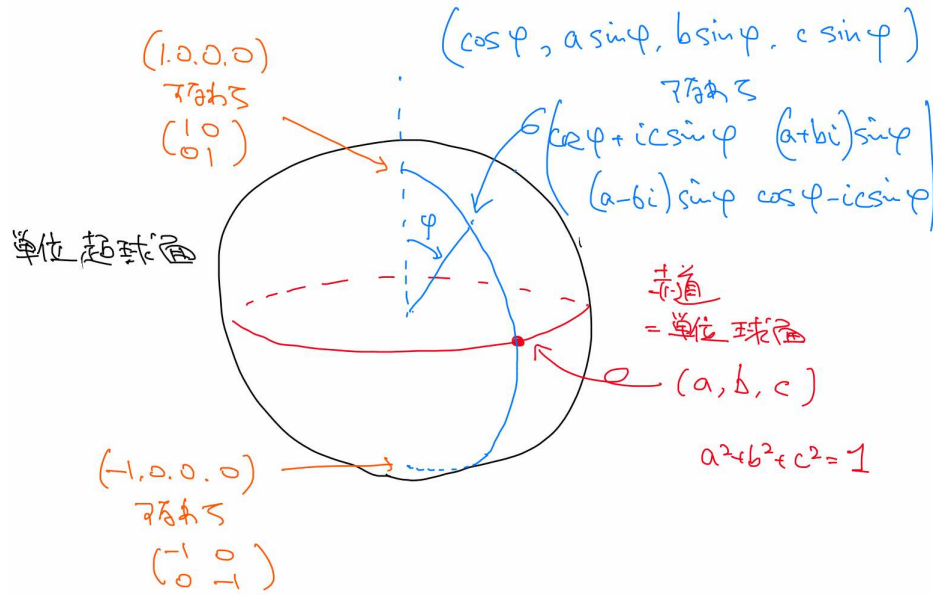 (1.0.0.0)
すなわち
(1 0
0 1)
(cosφ, a sinφ, b sinφ, c sinφ)
すなわち
(cosφ + i c sinφ (a+bi) sinφ
(a-bi) sinφ cosφ - i c sinφ)
φ
単位超球面
赤道
= 単位球面
(a, b, c)
a²+b²+c²=1
(-1.0.0.0)
すなわち
(-1 0
0 -1)